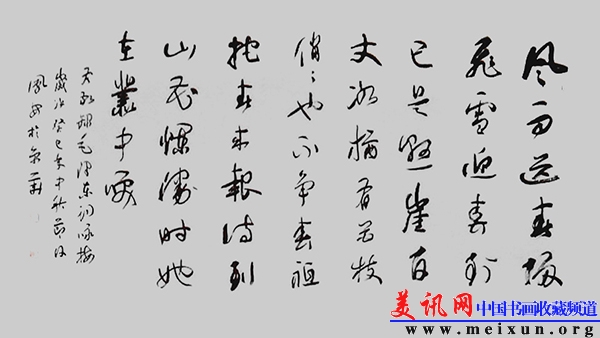 风雨送春归
飛雪迎春到
已是懸崖百
丈冰犹有花枝
俏〻也不争春祇
把春来報待到
山花烂漫时她
在叢中笑
毛泽东词咏梅
歲次癸巳年中秋节日
於京
美讯网中国书画收藏频道
www.meixun.org